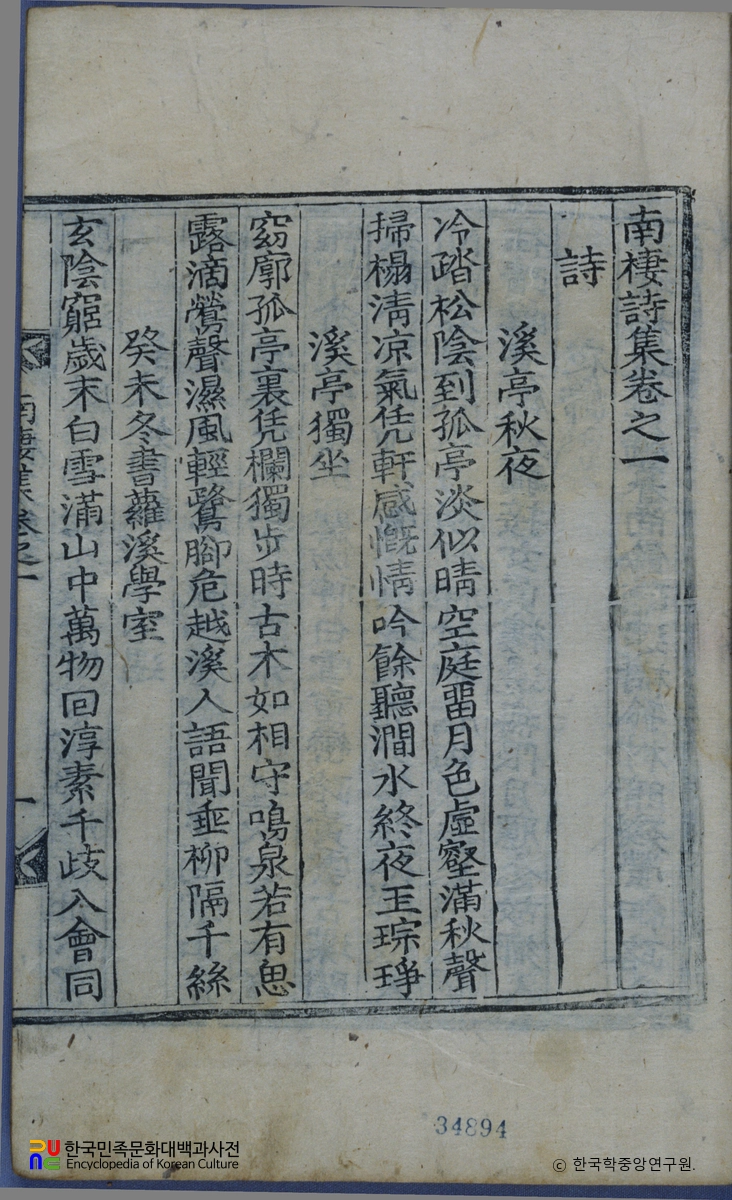 南棲詩集卷之一
詩
溪亭秋夜
冷踏松陰到孤亭淡似晴空庭畱月色虛壑滿秋聲
掃榻淸凉氣凭軒感慨情吟餘聽澗水終夜玉琮琤
溪亭獨坐
窈廓孤亭裏凭欄獨步時古木如相守鳴泉若有思
露滴鶯聲濕風輕鷺脚危越溪人語聞垂柳隔千絲
癸未冬書蘿溪學室
玄陰窮歲末白雪滿山中萬物回淳素千歧入會同
南棲集卷之一
一
34894
한국민족문화대백과사전
Encyclopedia of Korean Culture
© 한국학중앙연구원.